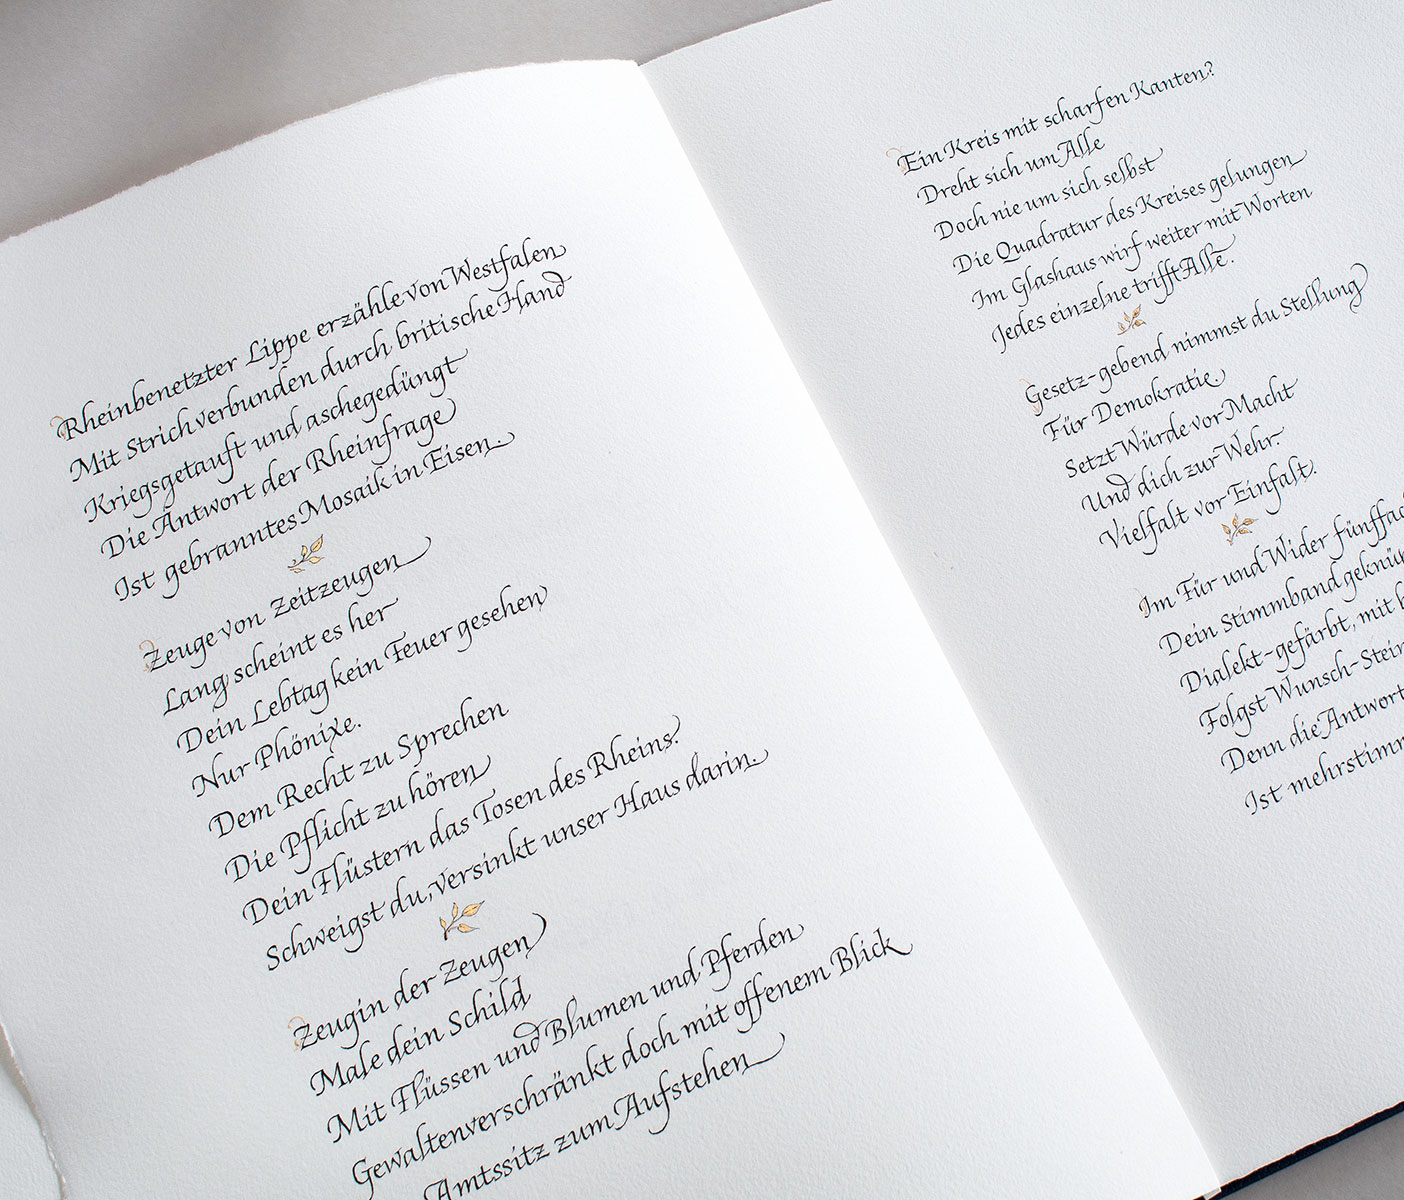 Rheinbenetzter Lippe erzähle von Westfalen
Mit Strich verbunden durch britische Hand
Kriegsgetauft und aschegedüngt
Die Antwort der Rheinfrage
Ist gebranntes Mosaik in Eisen.
Zeuge von Zeitzeugen
Lang scheint es her
Dein Lebtag kein Feuer gesehen
Nur Phönixe.
Dem Recht zu Sprechen
Die Pflicht zu hören
Dein Flüstern das Tosen des Rheins.
Schweigst du, versinkt unser Haus darin.
Zeugin der Zeugen
Male dein Schild
Mit Flüssen und Blumen und Pferden
Gewaltenverschränkt doch mit offenem Blick
Amtssitz zum Aufstehen
Ein Kreis mit scharfen Kanten?
Dreht sich um Alle
Doch nie um sich selbst
Die Quadratur des Kreises gelungen
Im Glashaus wirf weiter mit Worten
Jedes einzelne trifft Alle.
Gesetz-gebend nimmst du Stellung
Für Demokratie
Setzt Würde vor Macht
Und dich zur Wehr.
Vielfalt vor Einfalt.
Im Für und Wider
Dein Stimmband
Dialekt-gefärbt, mit
Folgst Wunsch-Stein
Denn die Antwort
Ist